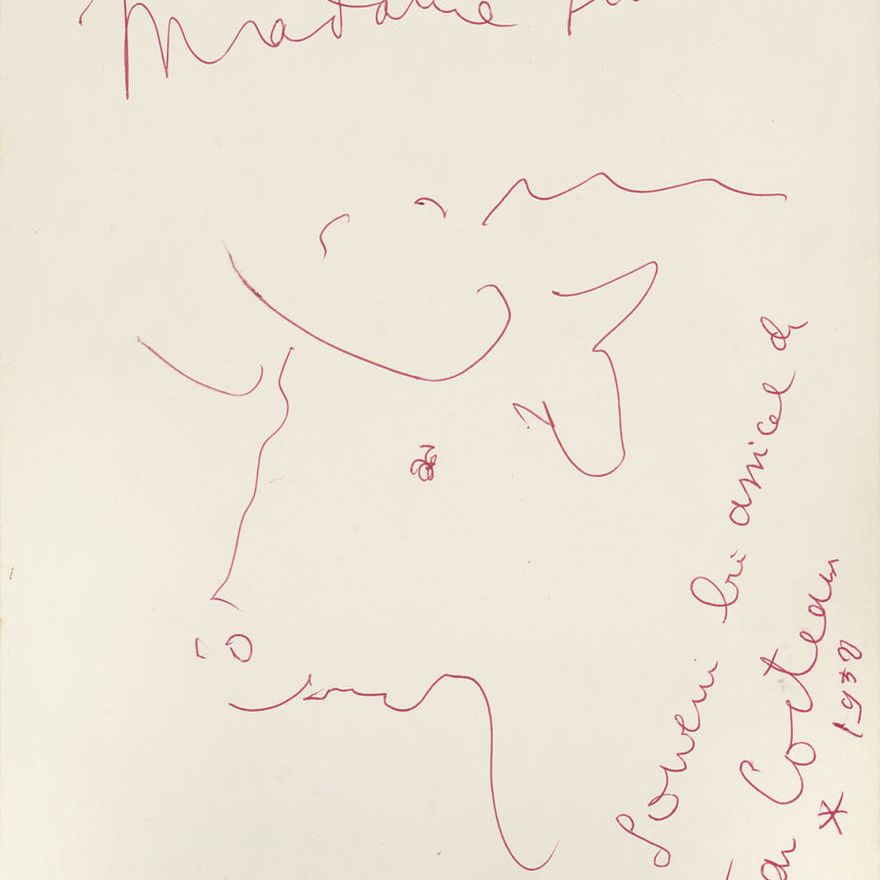 Madame
Souvenir très amical de
Jean Cocteau
* 1957